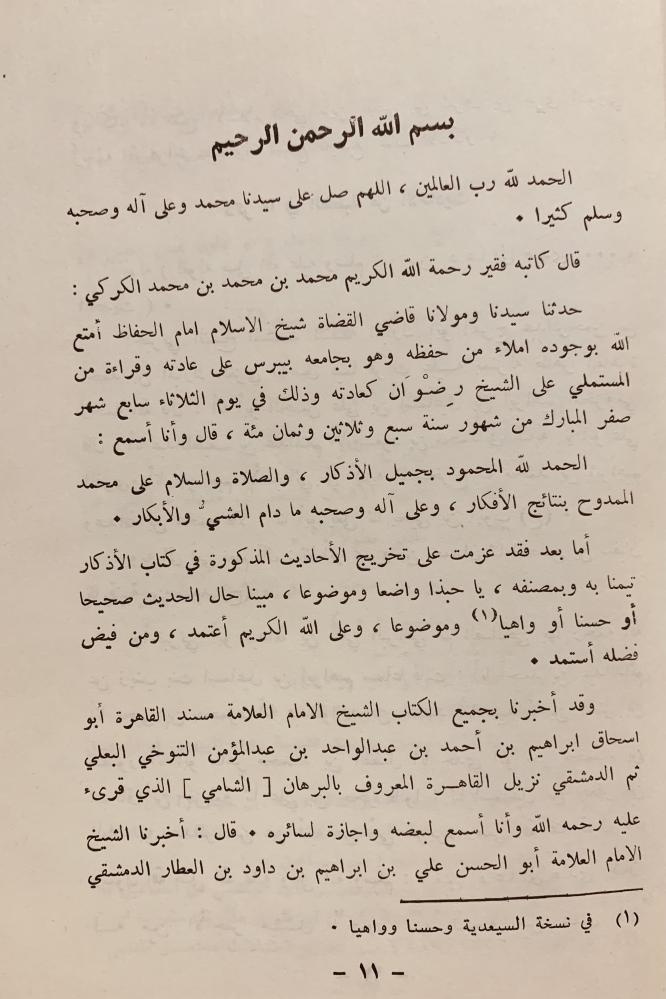 بسم الله الرحمن الرحيم
الحمد لله رب العالمين ، اللهم صل على سيدنا محمد وعلى آله وصحبه
وسلم كثيرا ٠
قال كاتبه فقير رحمة الله الكريم محمد بن محمد بن محمد الكركي :
حدثنا سيدنا ومولانا قاضي القضاة شيخ الاسلام امام الحفاظ أمتع
الله بوجوده املاء من حفظه وهو بجامعه بيبرس على عادته وقراءة من
المستملي على الشيخ رِضْوَان كعادته وذلك في يوم الثلاثاء سابع شهر
صفر المبارك من شهور سنة سبع وثلاثين وثمان مئة ، قال وأنا أسمع :
الحمد لله المحمود بجميل الأذكار ، والصلاة والسلام على محمد
الممدوح بنتائج الأفكار ، وعلى آله وصحبه ما دام العشيُّ والأبكار ٠
أما بعد فقد عزمت على تخريج الأحاديث المذكورة في كتاب الأذكار
تيمنا به وبمصنفه ، يا حبذا واضعا وموضوعا ، مبينا حال الحديث صحيحا
أو حسنا أو واهيا(١) وموضوعا ، وعلى الله الكريم أعتمد ، ومن فيض
فضله أستمد ٠
وقد أخبرنا بجميع الكتاب الشيخ الامام العلامة مسند القاهرة أبو
اسحاق ابراهيم بن أحمد بن عبدالواحد بن عبدالمؤمن التنوخي البعلي
ثم الدمشقي نزيل القاهــرة المعروف بالبرهان [ الشامي ] الذي قرىء
عليه رحمه الله وأنا أسمع لبعضه واجازة لسائره ٠ قال : أخبرنا الشيخ
الامام العلامة أبو الحسن علي بن ابراهيم بن داود بن العطار الدمشقي
(١) في نسخة السيعدية وحسنا وواهيا ٠
– ١١ –